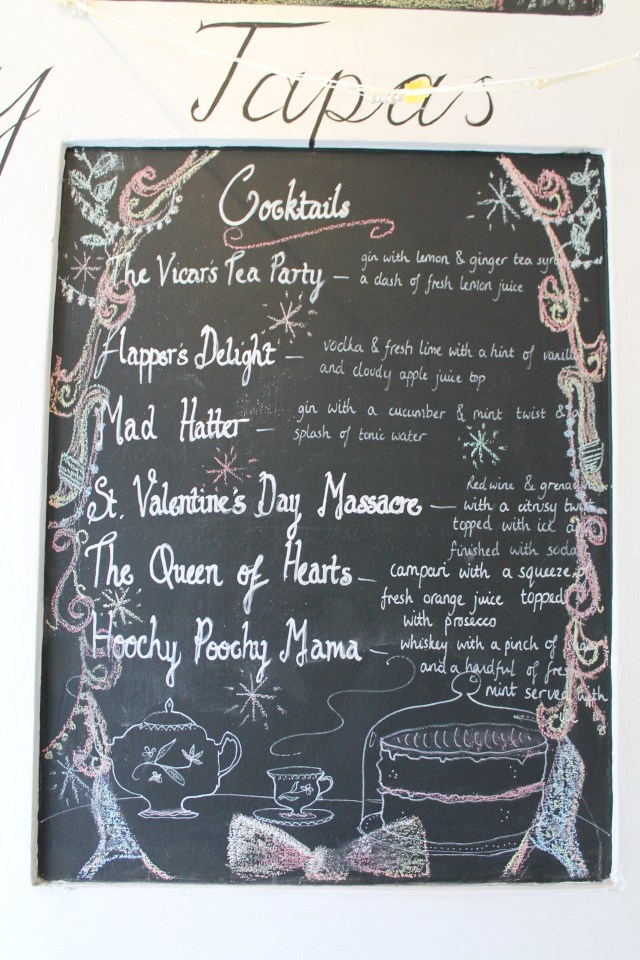 Tapas
Cocktails
The Vicar's Tea Party – gin with lemon & ginger tea
a dash of fresh lemon juice
Flapper's Delight – vodka & fresh lime with a hint of
and cloudy apple juice top
Mad Hatter – gin with a cucumber & mint twist & a
splash of tonic water
St. Valentine's Day Massacre – Red wine &
with a citrusy
topped with ice
finished with soda
The Queen of Hearts – campari with a squeeze
fresh orange juice topped
with prosecco
Hoochy Poochy Mama – whiskey with a pinch of
and a handful of
mint served with